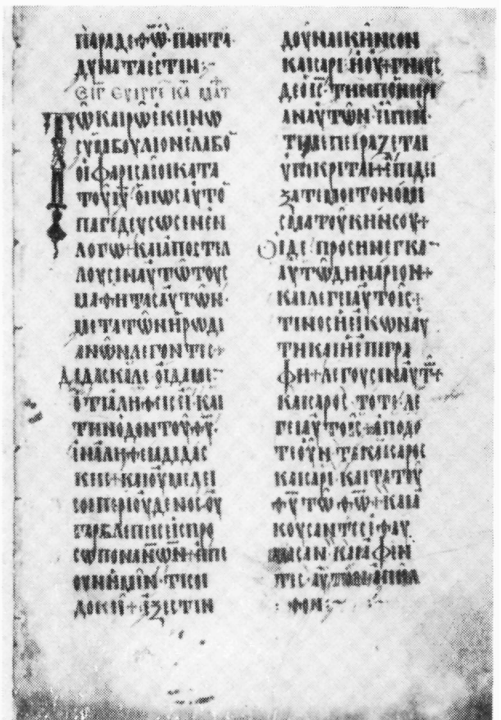 ΠΑΡΑΔΕΘ͞Ω ΠΑΝΤΑ·
ΔΥΝΑΤΑ ΕΣΤΙΝ·
ΤΩ ΚΑΙΡΩ ΕΚΕΙΝΩ
ΣΥΜΒΟΥΛΙΟΝ ΕΛΑΒΟ̅
ΟΙ ΦΑΡΙΣΑΙΟΙ ΚΑΤΑ
ΤΟΥ Ι͞Υ ΟΠΩΣ ΑΥΤΟ̅
ΠΑΓΙΔΕΥΣΩΣΙΝ ΕΝ
ΛΟΓΩ + ΚΑΙ ΑΠΟΣΤΕΛ
ΛΟΥΣΙΝ ΑΥΤΩ ΤΟΥΣ
ΜΑΘΗΤΑΣ ΑΥΤΩΝ·
ΜΕΤΑ ΤΩΝ ΗΡΩΔΙ
ΑΝΩΝ ΛΕΓΟΝΤΕΣ +
ΔΙΔΑΣΚΑΛΕ ΟΙΔΑΜΕ̅
ΟΤΙ ΑΛΗΘΕΙΣ ΕΙ ΚΑΙ
ΤΙΝ ΟΔΟΝ ΤΟΥ Θ͞Υ·
ΕΝ ΑΛΗΘΕΙΑ ΔΙΔΑΣ
ΚΕΙΣ + ΚΑΙ ΟΥ ΜΕΛΕΙ
ΣΟΙ ΠΕΡΙ ΟΥΔΕΝΟΣ ΟΥ
ΓΑΡ ΒΛΕΠΕΙΣ ΕΙΣ ΠΡΟ
ΣΩΠΟΝ ΑΝ͞ΩΝ + ΕΙΠΕ
ΟΥΝ ΗΜΙΝ ΤΙ ΣΟΙ
ΔΟΚΕΙ + ΕΞΕΣΤΙΝ
ΔΟΥΝΑΙ ΚΗΝΣΟΝ
ΚΑΙΣΑΡΙ Η ΟΥ + ΓΝΟΥΣ
ΔΕ Ο Ι͞Σ ΤΗΝ ΠΟΝΗΡΙ
ΑΝ ΑΥΤΩΝ ΕΙΠΕΝ·
ΤΙ ΜΕ ΠΕΙΡΑΖΕΤΑΙ
ΥΠΟΚΡΙΤΑΙ + ΕΠΙΔΕΙ
ΞΑΤΕ ΜΟΙ ΤΟ ΝΟΜΙ
ΣΜΑ ΤΟΥ ΚΗΝΣΟΥ +
ΟΙ ΔΕ ΠΡΟΣΗΝΕΓΚΑ̅
ΑΥΤΩ ΔΗΝΑΡΙΟΝ +
ΚΑΙ ΛΕΓΕΙ ΑΥΤΟΙΣ +
ΤΙΝΟΣ Η ΕΙΚΩΝ ΑΥ
ΤΗ ΚΑΙ Η ΕΠΙΓΡΑ
ΦΗ + ΛΕΓΟΥΣΙΝ ΑΥΤΩ +
ΚΑΙΣΑΡΟΣ· ΤΟΤΕ ΛΕ
ΓΕΙ ΑΥΤΟΙΣ + ΑΠΟΔΟ
ΤΕ ΟΥΝ ΤΑ ΚΑΙΣΑΡΟΣ
ΚΑΙΣΑΡΙ ΚΑΙ ΤΑ ΤΟΥ
Θ͞Υ ΤΩ Θ͞Ω + ΚΑΙ Α
ΚΟΥΣΑΝΤΕΣ ΕΘΑΥ
ΜΑΣΑΝ ΚΑΙ ΑΦΕΝ
ΤΕΣ ΑΥΤΟΝ ΑΠΗΛ
ΘΟΝ